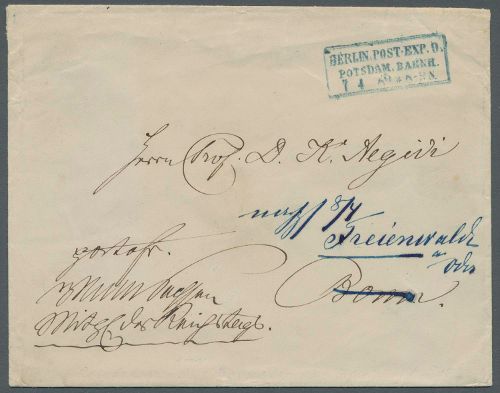 BERLIN. POST-EXP. D.
POTSDAM. BAHNH.
7 4 8-9N.
Herrn Prof. D. K. Aegidi
nach 8/4
Freienwalde
a/Oder
Bonn.
portofr.
Mitgl. des Reichstags.